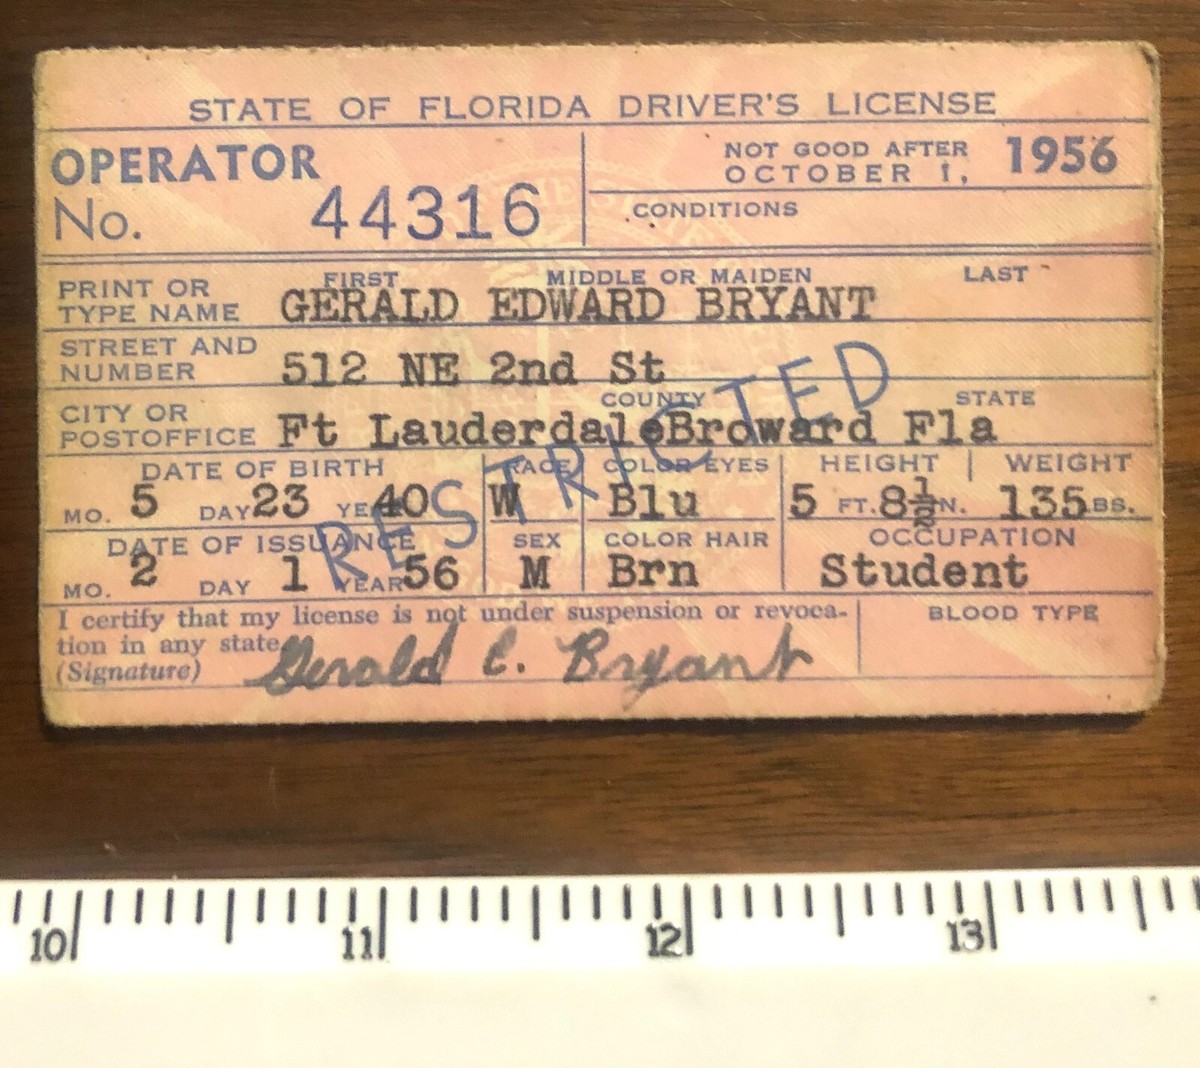 STATE OF FLORIDA DRIVER'S LICENSE
OPERATOR
No. 44316
NOT GOOD AFTER
OCTOBER 1, 1956
CONDITIONS
FIRST MIDDLE OR MAIDEN LAST
PRINT OR
TYPE NAME GERALD EDWARD BRYANT
STREET AND
NUMBER 512 NE 2nd St
COUNTY STATE
CITY OR
POSTOFFICE Ft Lauderdale Broward Fla
RESTRICTED
DATE OF BIRTH RACE COLOR EYES HEIGHT WEIGHT
MO. 5 DAY 23 YEAR 40 W Blu 5 FT. 8½ IN. 135 LBS.
DATE OF ISSUANCE SEX COLOR HAIR OCCUPATION
MO. 2 DAY 1 YEAR 56 M Brn Student
I certify that my license is not under suspension or revoca-
tion in any state.
(Signature) Gerald E. Bryant
BLOOD TYPE
10 11 12 13